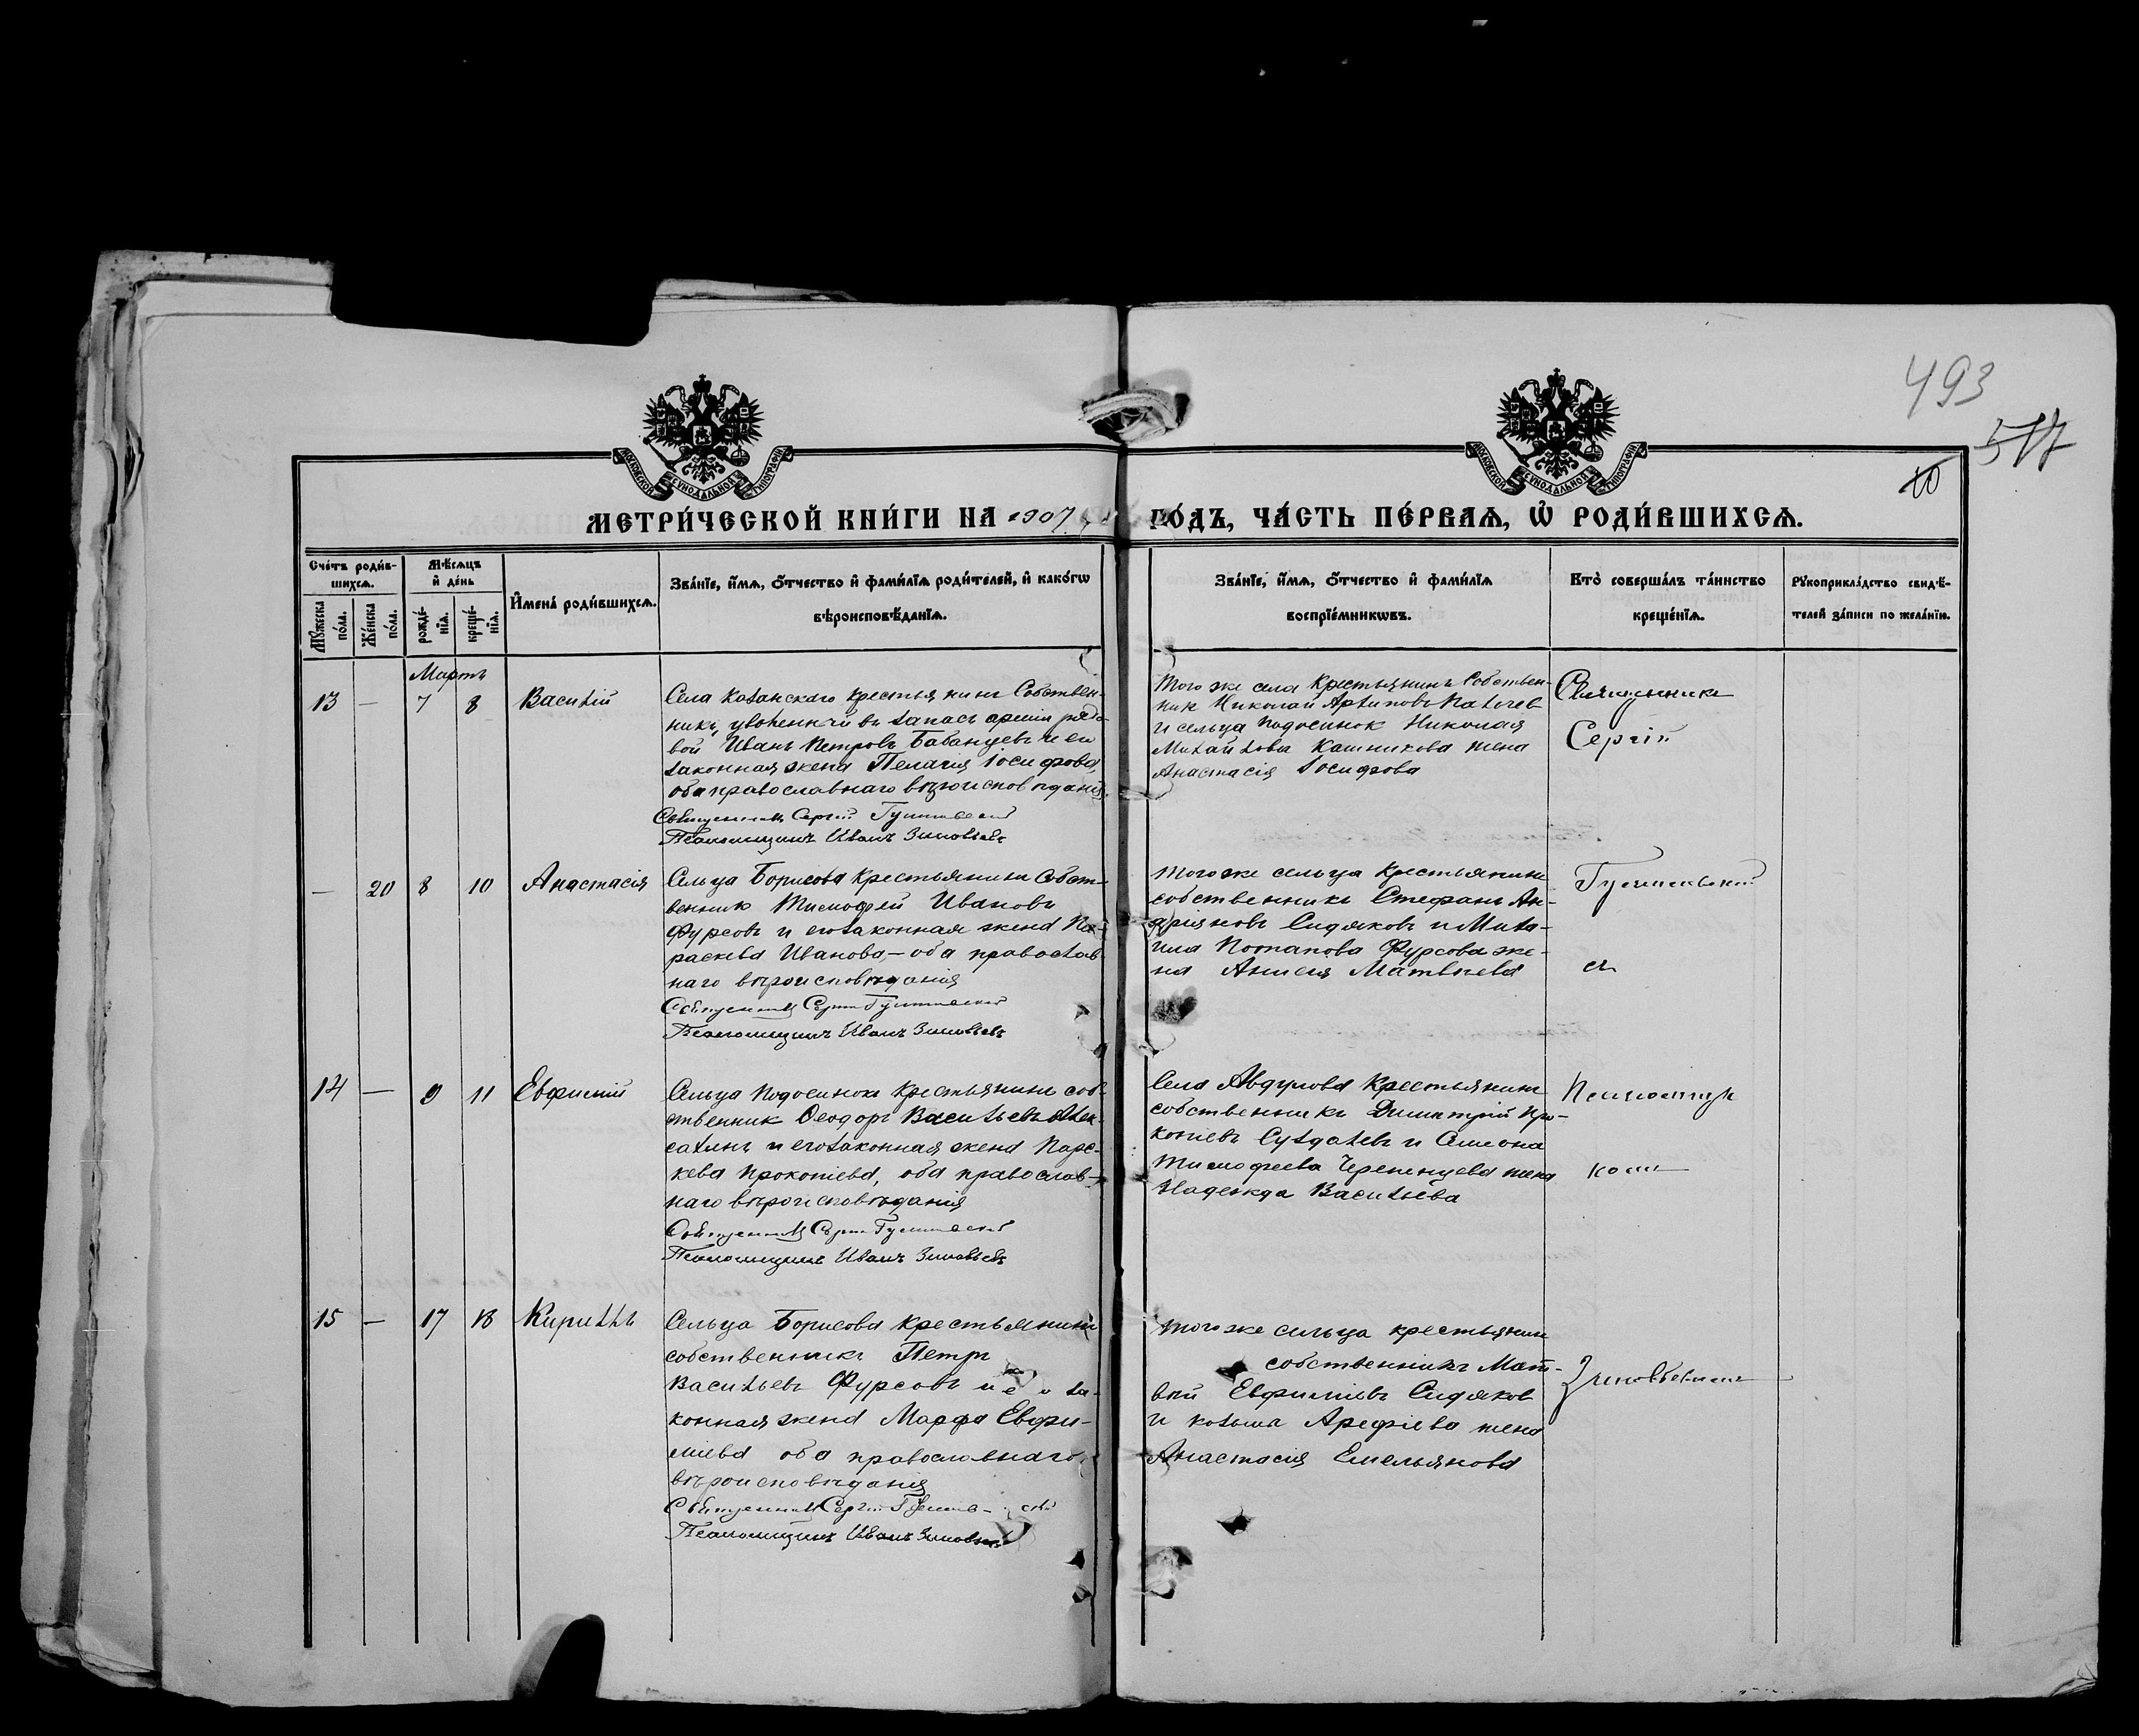 493
517
10
МОСКОВСКОЙ СУНОДАЛЬНОЙ ТИПОГРАФИИ
МОСКОВСКОЙ СУНОДАЛЬНОЙ ТИПОГРАФИИ
МЕТРИ́ЧЕСКОЙ КНИ́ГИ НА 1907 ГО́ДЪ, ЧА́СТЬ ПЕ́РВАѦ, Ѡ҆ РОДИ́ВШИХСѦ.
Сче́тъ роди́в-
шихсѧ.
Мꙋ́жеска по́ла.
Же́нска по́ла.
Мѣ́сѧцъ
и҆ де́нь
рожде́-
нїѧ.
креще́-
нїѧ.
И҆мена̀ роди́вшихсѧ.
Зва́нїе, и҆́мѧ, ѻ҆́тчество и҆ фами́лїѧ роди́телей, и҆ како́гѡ
вѣроисповѣ́данїѧ.
Зва́нїе, и҆́мѧ, ѻ҆́тчество и҆ фами́лїѧ
воспрїе́мникѡвъ.
Кто̀ соверша́лъ та́инство
креще́нїѧ.
Рꙋкоприкла́дство свидѣ́-
телей за́писи по жела́нїю.
Мартъ
13 — 7 8 Василій
Села Казанскаго крестьянинъ Собствен-
никъ, уволенный въ запасъ арміи рядо-
вой Иванъ Петровъ Бабанцевъ и его
законная жена Пелагия Іосифова,
оба православнаго вѣроисповѣданія
Священникъ Сергій
Псаломщикъ Иванъ Зиновьевъ
Того же села Крестьянинъ Собствен-
ник Николай Архиповъ
и сельца Подосинок Николая
Михайлова Кашникова жена
Анастасія Іосифова
Священникъ
Сергій
— 20 8 10 Анастасія
Сельца Борисова крестьянинъ Собст-
венник Тимофей Ивановъ
Фурсовъ и его законная жена Па-
раскева Иванова, — оба православ-
наго вѣроисповѣданія
Священникъ Сергій
Псаломщикъ Иванъ Зиновьевъ
Того же сельца Крестьянинъ
собственникъ Стефанъ Ан-
дріяновъ Сидяковъ и Миха-
ила Потапова Фурсова же-
на Анисія Матвѣева
съ
14 — 9 11 Евфимій
Сельца Подосинокъ Крестьянинъ соб-
ственник Ѳеодоръ Васильевъ Алек-
салинъ и его законная жена Парас-
кева Прокопіева, оба православ-
наго вѣроисповѣданія
Священникъ Сергій
Псаломщикъ Иванъ Зиновьевъ
Села Авдулова Крестьянинъ
собственникъ Димитрій Про-
копіевъ Суздалевъ и Симеона
Тимофеева Черепенцева жена
Надежда Васильева
Псаломщи-
комъ
15 — 17 18 Кириллъ
Сельца Борисова крестьянинъ
собственникъ Петръ
Васильевъ Фурсовъ и его за-
конная жена Марфа Евфи-
міева оба православнаго
вѣроисповѣданія
Священникъ Сергій
Псаломщикъ Иванъ Зиновьевъ
Того же сельца крестьянин
собственникъ Мат-
вей Евфиміевъ Сидяков
и Козьма Арефіева жена
Анастасія Емельянова
Зиновьевымъ